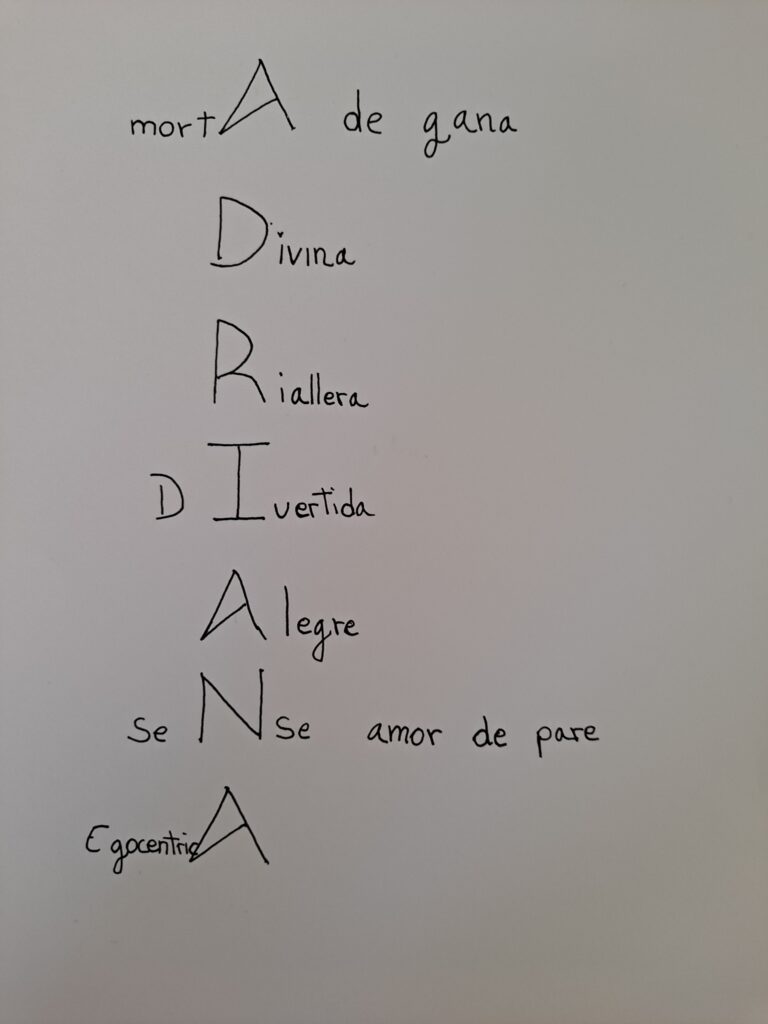 mortA de gana
Divina
Riallera
DIvertida
Alegre
seNse amor de pare
EgocentricA